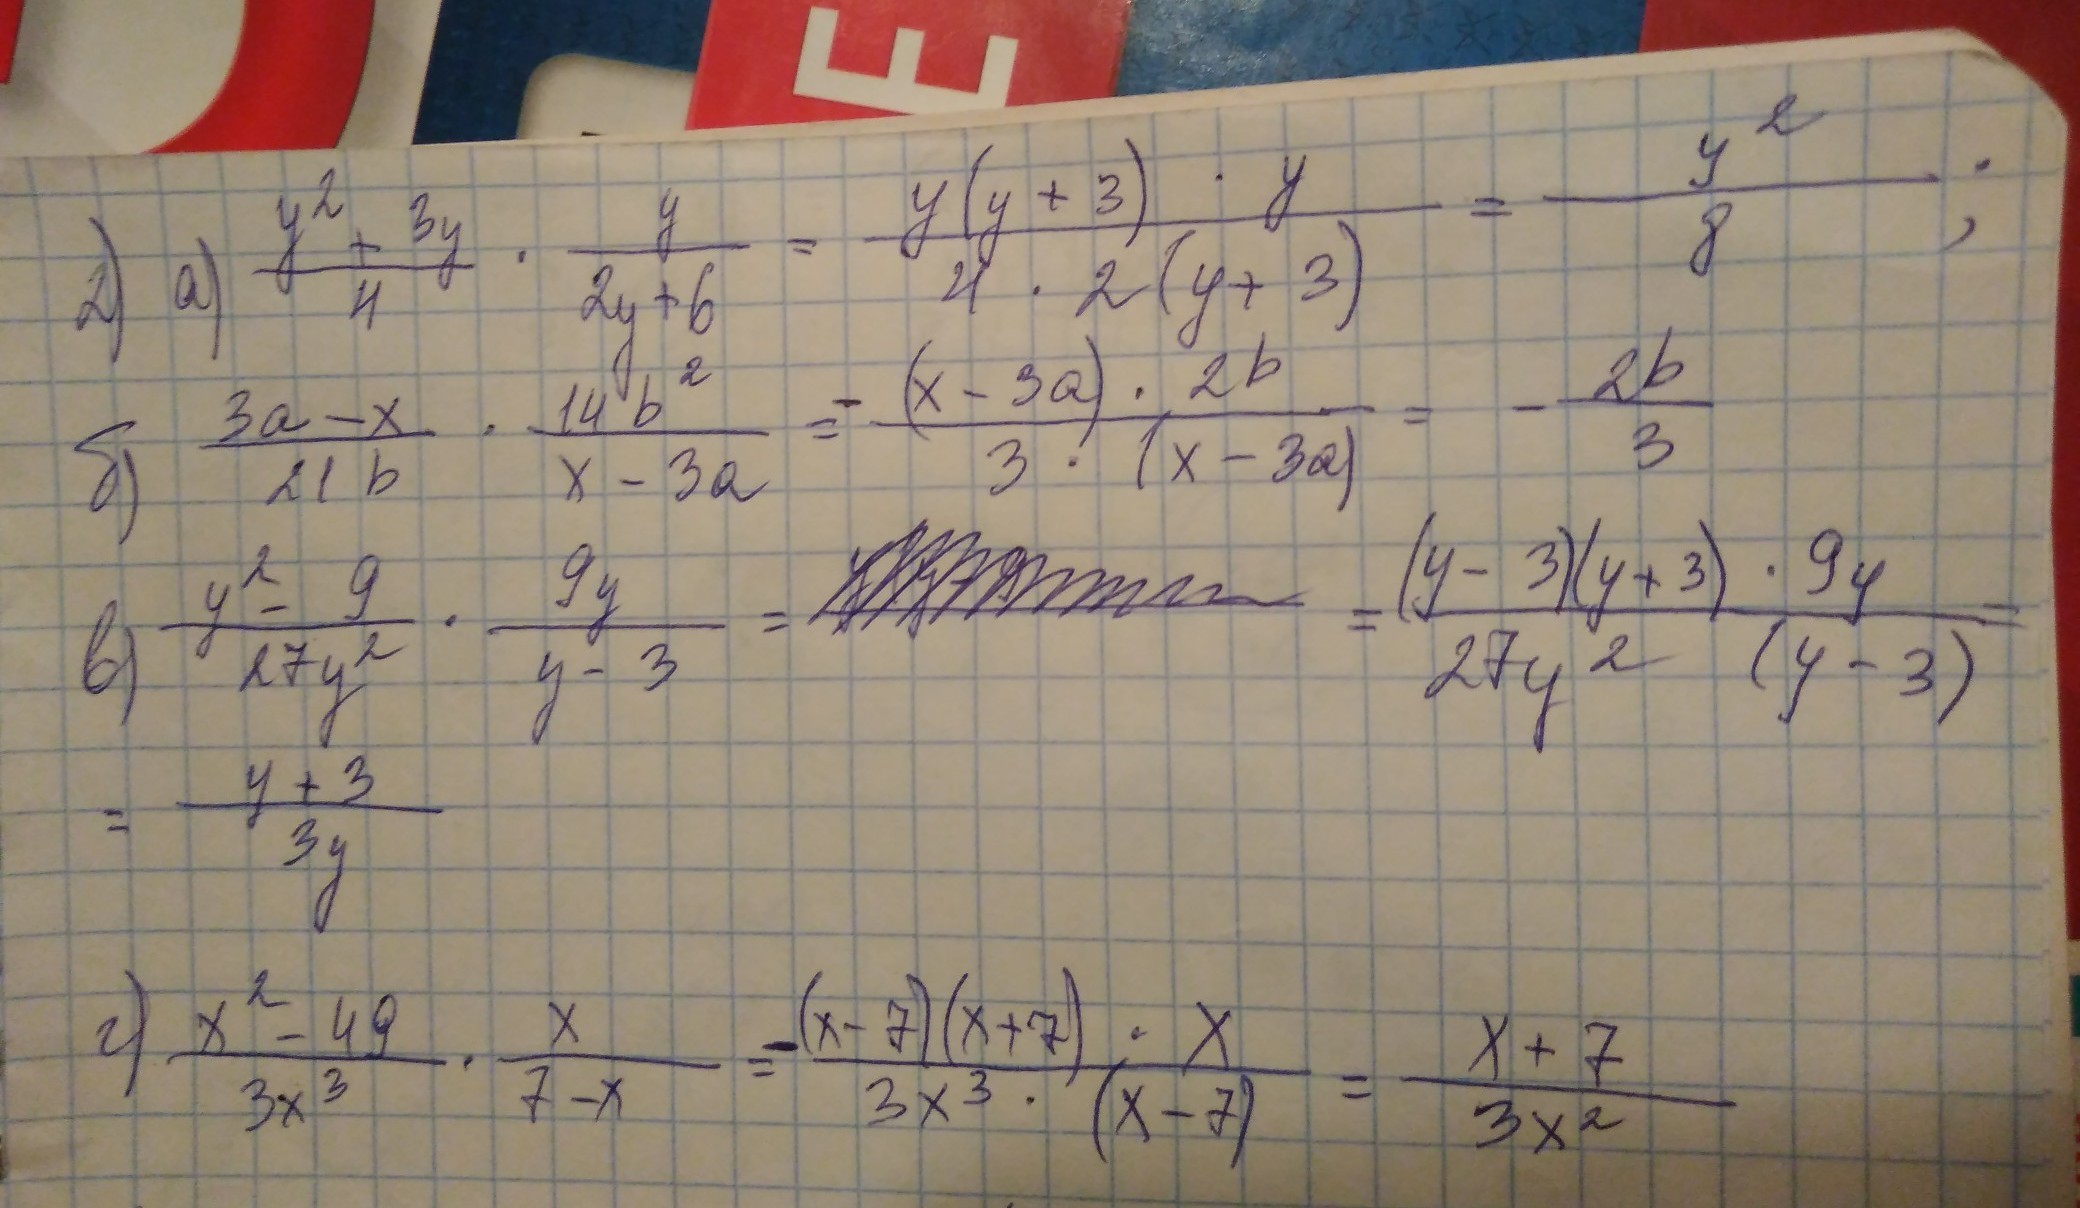 E
2) а) (y² + 3y)/4 · y/(2y+6) = (y(y+3) · y)/(4 · 2(y+3)) = y²/8 ;
б) (3a - x)/(21b) · (14b²)/(x - 3a) = - ((x - 3a) · 2b)/(3 · (x - 3a)) = - 2b/3
в) (y² - 9)/(27y²) · 9y/(y - 3) = = ((y - 3)(y+3) · 9y)/(27y² (y - 3)) =
= (y + 3)/(3y)
г) (x² - 49)/(3x³) · x/(7 - x) = - ((x - 7)(x+7) · x)/(3x³ · (x - 7)) = (x + 7)/(3x²)